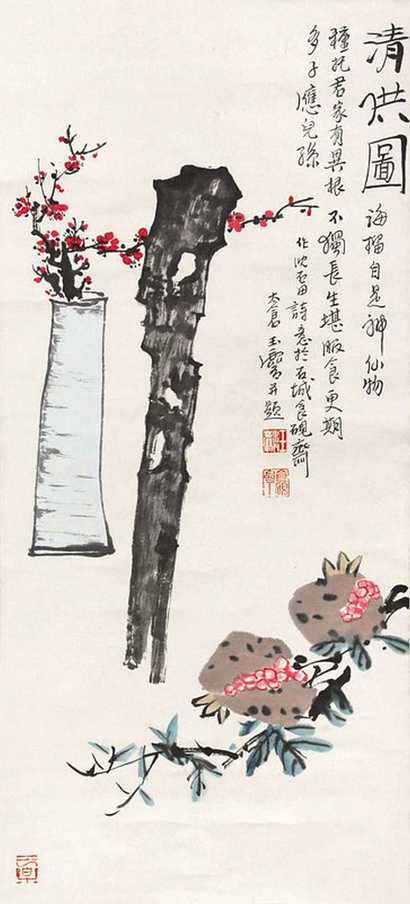 清供圖
海榴自是神仙物
種托君家有異根不獨長生堪服食更期
多子應兒孫
作沈石田詩意於石城食硯齋
太倉玉霽并題